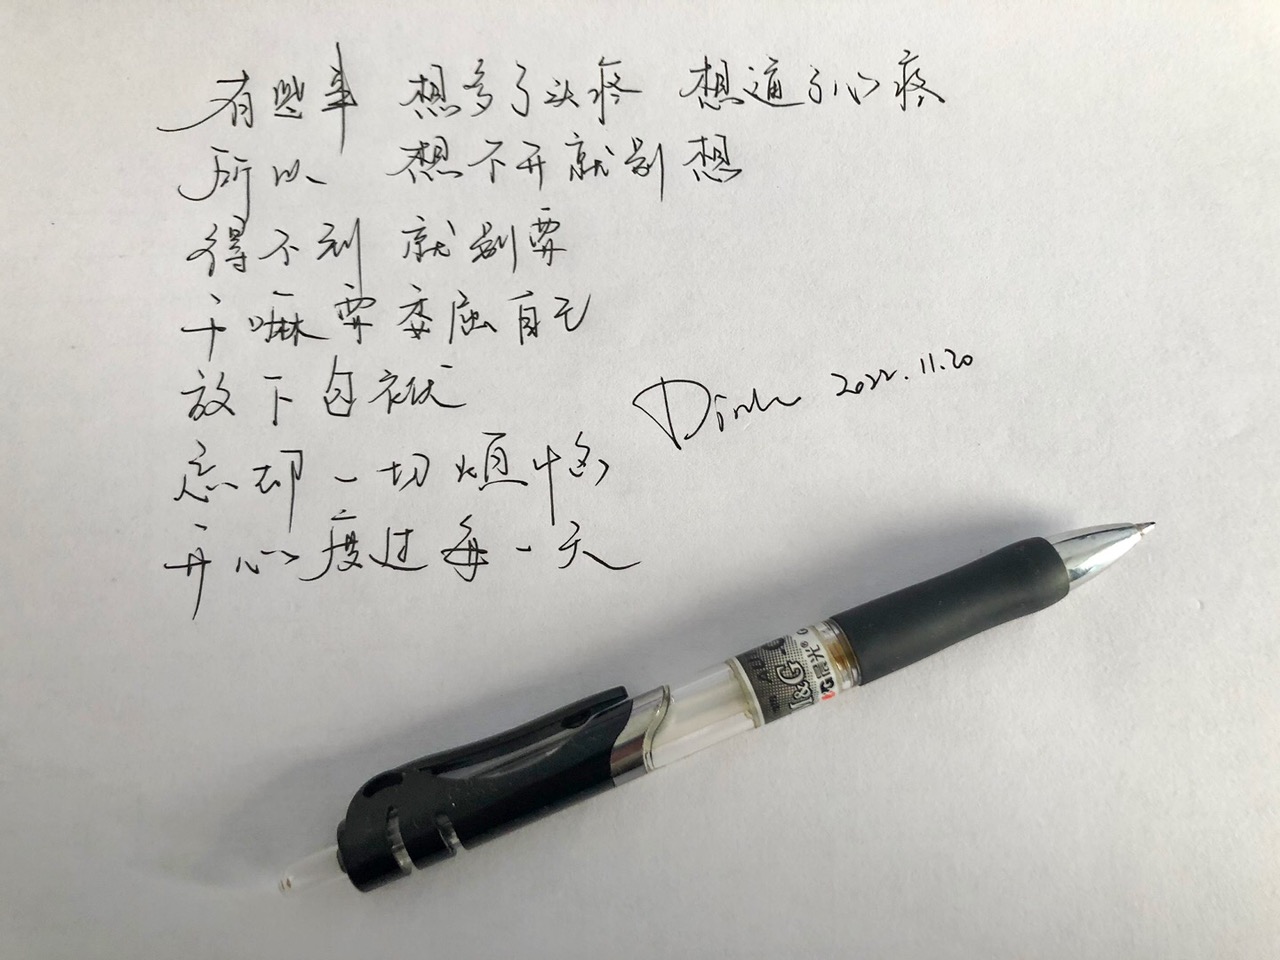 有些事 想多了头疼 想通了心疼
所以 想不开就别想
得不到 就别要
干嘛要委屈自己
放下包袱
忘却一切烦恼
开心度过每一天
2022.11.20
M&G晨光